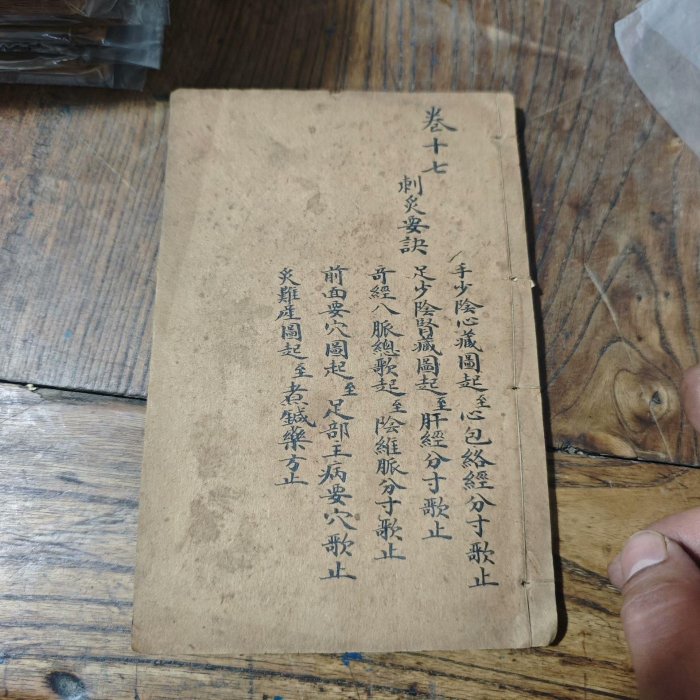 卷十七
刺灸要訣
手少陰心藏圖起至心包絡經分寸歌止
足少陰腎藏圖起至肝經分寸歌止
奇經八脈總歌起至陰維脈分寸歌止
前面要穴圖起至足部主病要穴歌止
灸難產圖起至煮鍼藥方止